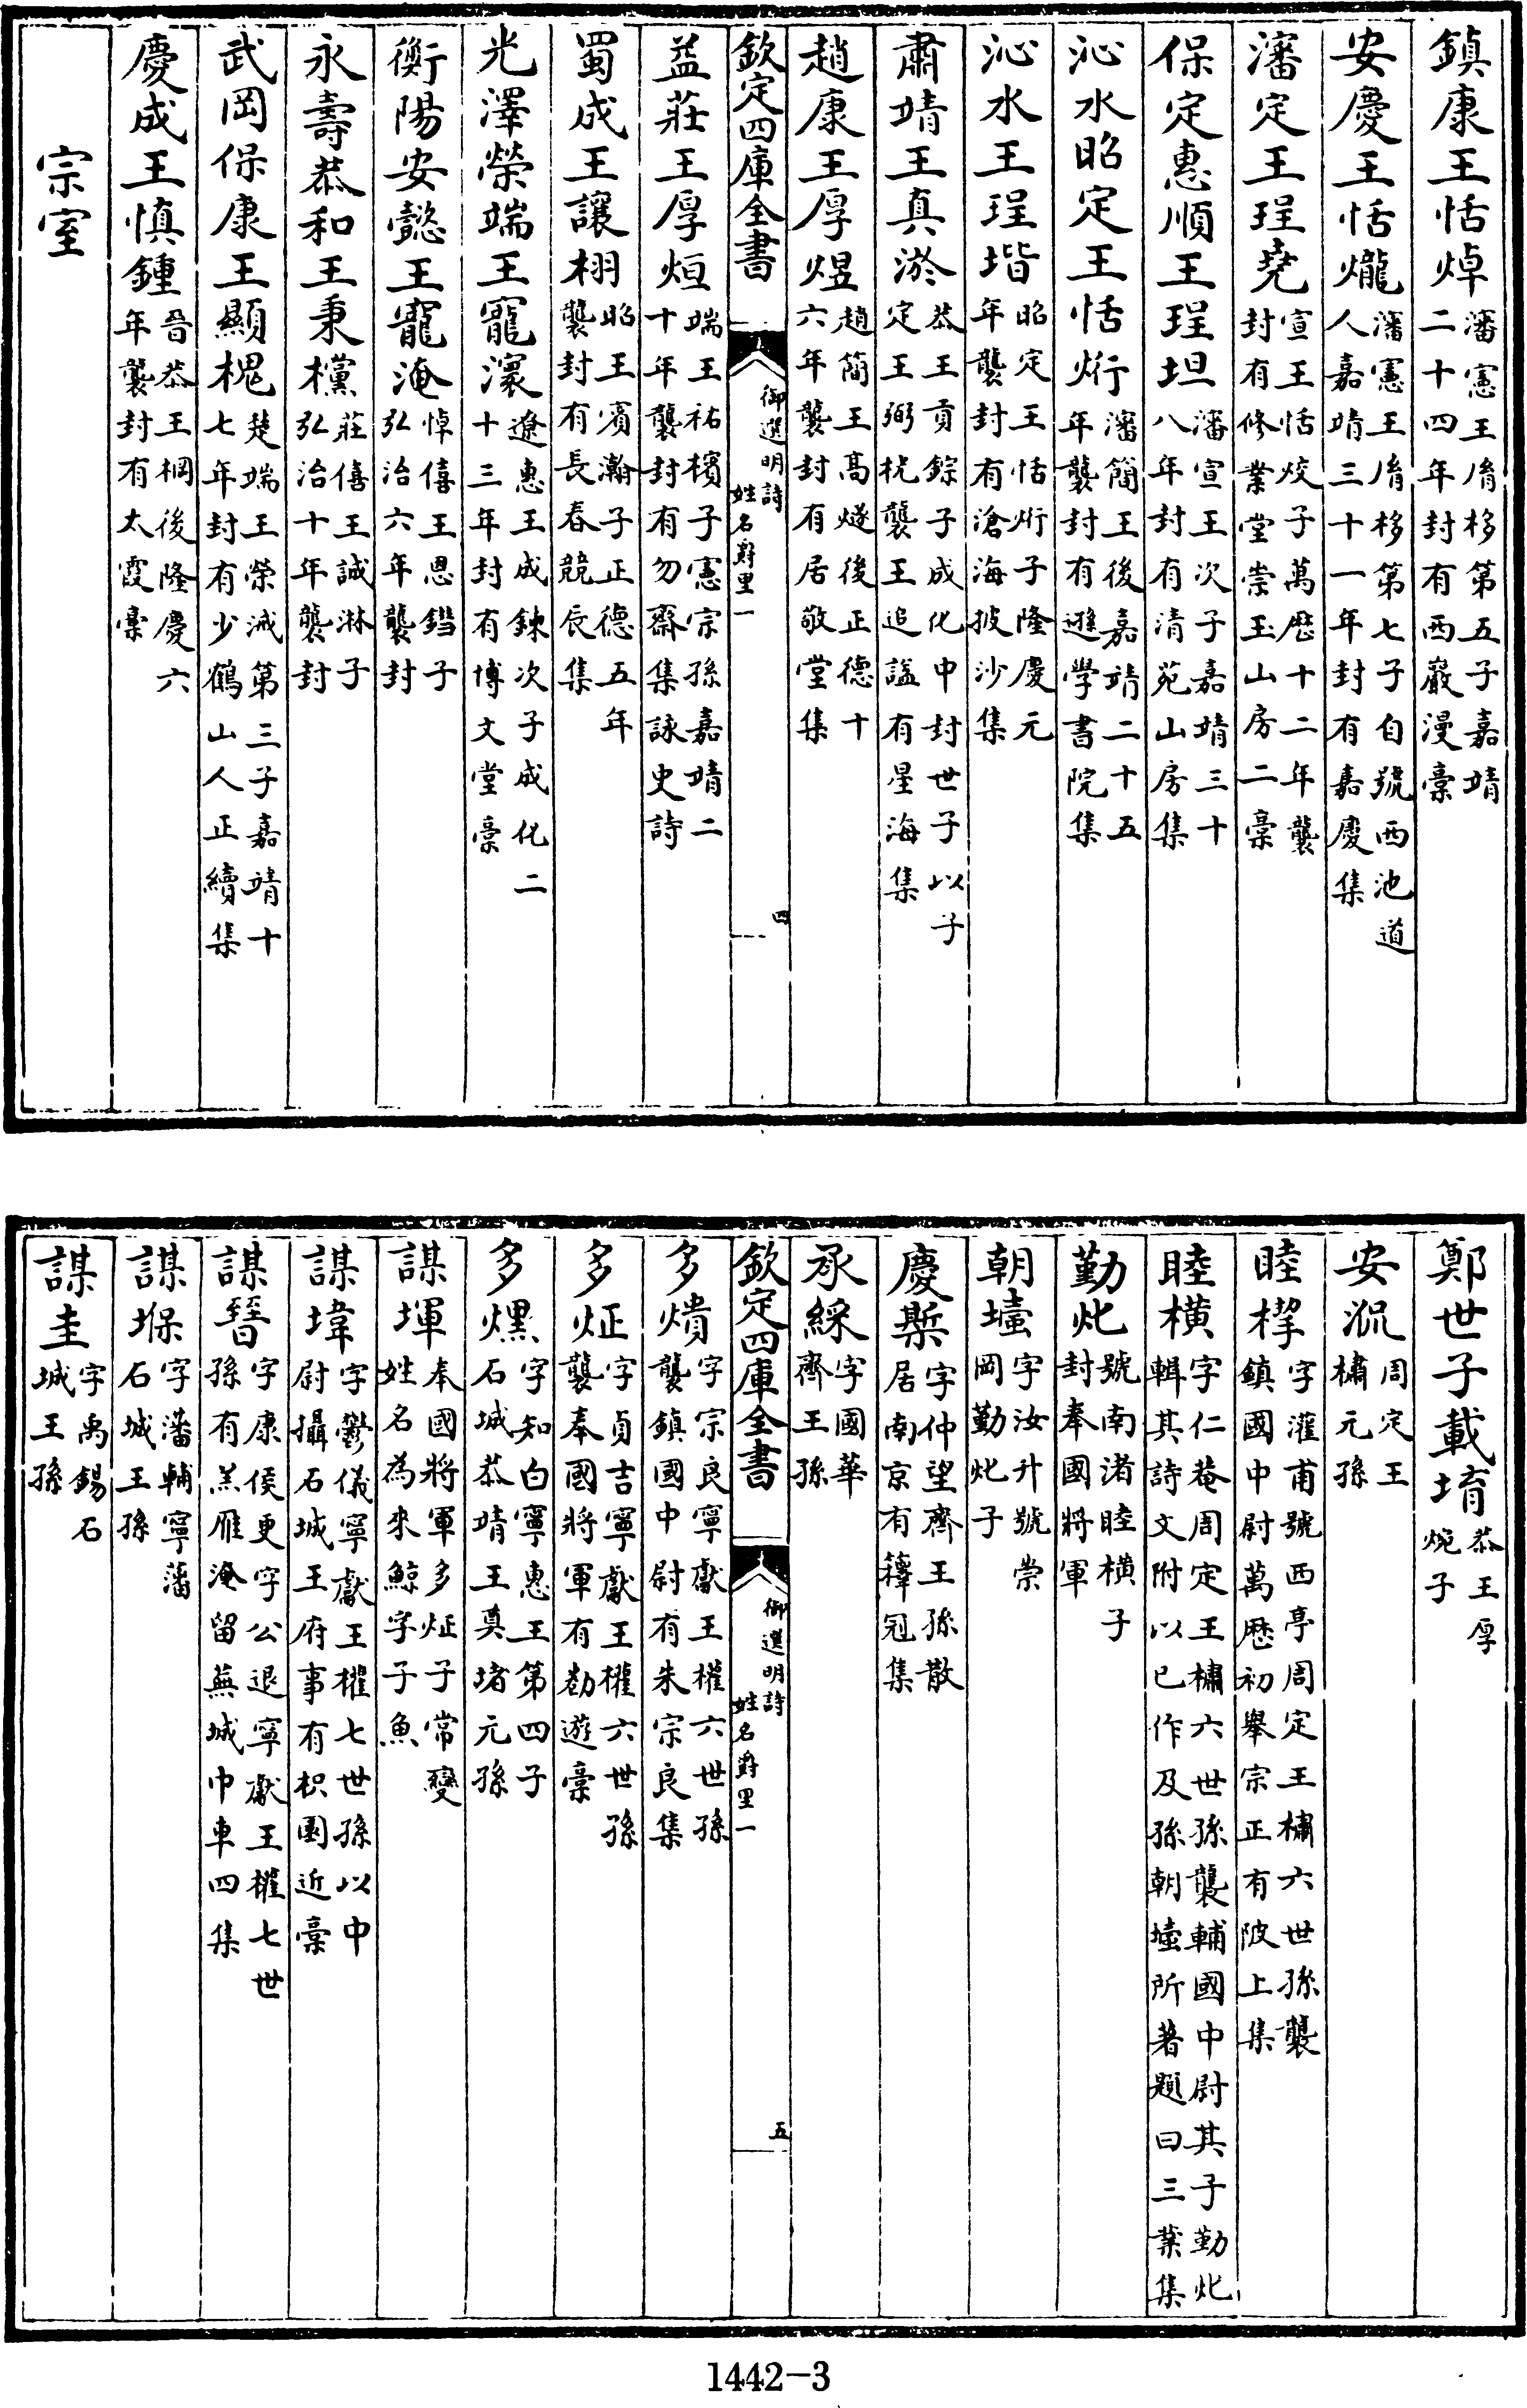 鎮康王恬焯瀋憲王胤栘第五子嘉靖二十四年封有西巖漫稾
安慶王恬爖瀋憲王胤栘第七子自號西池道人嘉靖三十一年封有嘉慶集
瀋定王珵堯宣王恬烄子萬厯十二年襲封有修業堂崇玉山房二稾
保定惠順王珵坦瀋宣王次子嘉靖三十八年封有清苑山房集
沁水昭定王恬烆瀋簡王後嘉靖二十五年襲封有遜學書院集
沁水王珵堦昭定王恬烆子隆慶元年襲封有滄海披沙集
肅靖王真淤恭王貢錝子成化中封世子以子定王弼桄襲王追諡有星海集
趙康王厚煜趙簡王高燧後正德十六年襲封有居敬堂集
欽定四庫全書
御選明詩
姓名爵里一
四
益莊王厚烜端王祐檳子憲宗孫嘉靖二十年襲封有勿齋集詠史詩
蜀成王讓栩昭王賓瀚子正德五年襲封有長春競辰集
光澤榮端王寵瀤遼惠王成鍊次子成化二十三年封有博文堂稾
衡陽安懿王寵淹悼僖王恩鏳子弘治六年襲封
永壽恭和王秉欓莊僖王誠淋子弘治十年襲封
武岡保康王顯槐楚端王榮㳦第三子嘉靖十七年封有少鶴山人正續集
慶成王慎鍾晉恭王棡後隆慶六年襲封有太霞稾
宗室
鄭世子載堉恭王厚烷子
安㳘周定王橚元孫
睦㮮字灌甫號西亭周定王橚六世孫襲鎮國中尉萬厯初舉宗正有陂上集
睦横字仁菴周定王橚六世孫襲輔國中尉其子勤㶨輯其詩文附以已作及孫朝㙔所著題曰三業集
勤㶨號南渚睦横子封奉國將軍
朝㙔字汝升號崇岡勤㶨子
慶㮇字仲望齊王孫散居南京有籜冠集
承綵字國華齊王孫
欽定四庫全書
御選明詩
姓名爵里一
五
多熿字宗良寧獻王權六世孫襲鎮國中尉有朱宗良集
多炡字貞吉寧獻王權六世孫襲奉國將軍有勌遊稾
多㷱字知白寧惠王第四子石城恭靖王奠堵元孫
謀㙔奉國將軍多炡子常變姓名為來鯤字子魚
謀㙔字鬱儀寧獻王權七世孫以中尉攝石城王府事有枳園近稾
謀㬜字康侯更字公退寧獻王權七世孫有羔雁淹留蕪城巾車四集
謀㙅字藩輔寧藩石城王孫
謀圭字禹錫石城王孫
1442-3